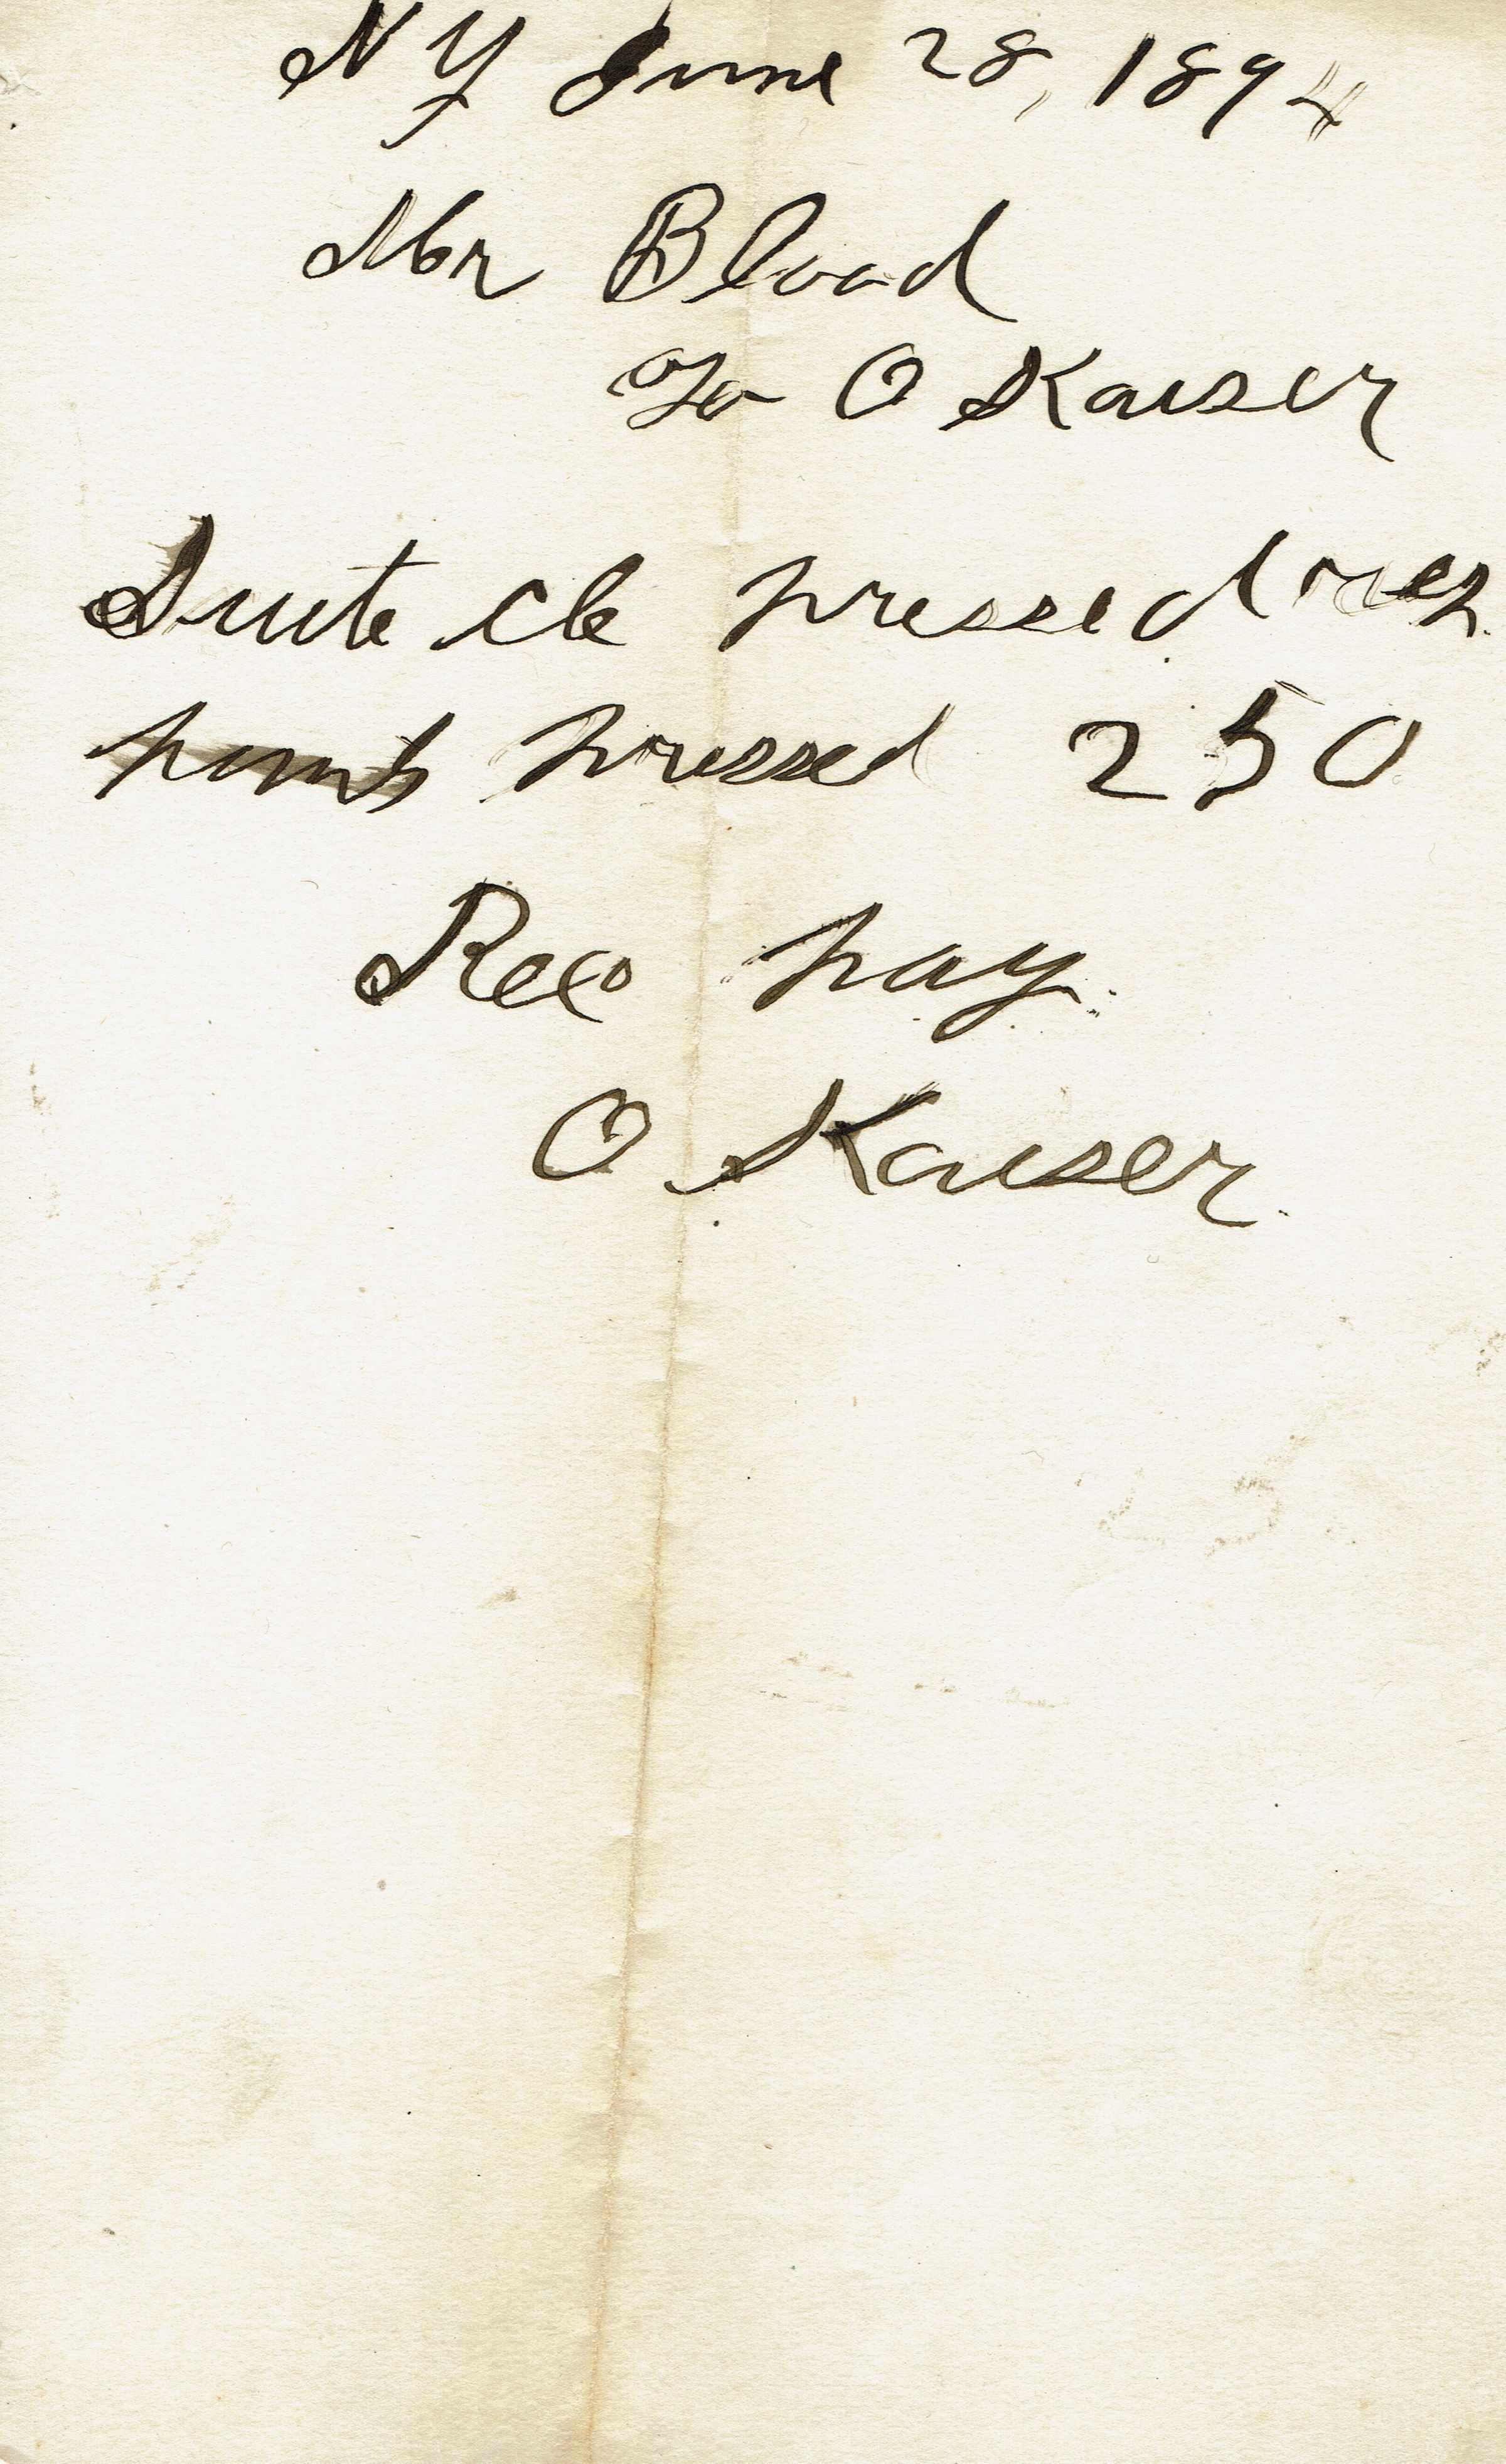 NY June 28, 1894
Mr Blood
To O Kaiser
Suite cle pressed rep.
pants pressed 250
Rec pay.
O Kaiser.